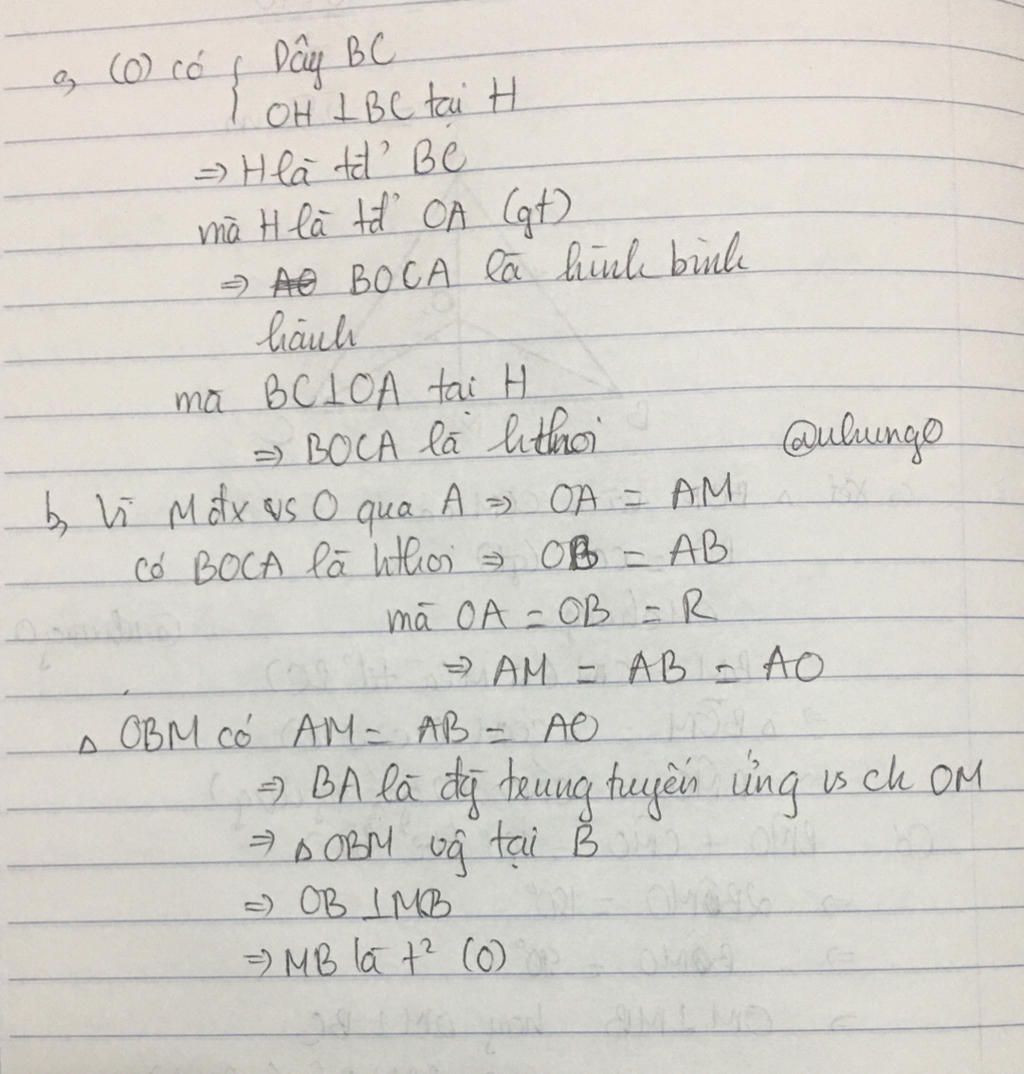 a, (O) có { Dây BC
OH ⊥ BC tại H
⇒ H là tđ' BC
mà H là tđ' OA (gt)
⇒ BOCA là hình bình
hành
mà BC ⊥ OA tại H
⇒ BOCA là hthoi @nhung0
b, Vì M đx vs O qua A ⇒ OA = AM
có BOCA là hthoi ⇒ OB = AB
mà OA = OB = R
⇒ AM = AB = AO
△ OBM có AM = AB = AO
⇒ BA là đg trung tuyến ứng vs ch OM
⇒ △OBM vg tại B
⇒ OB ⊥ MB
⇒ MB là t² (O)